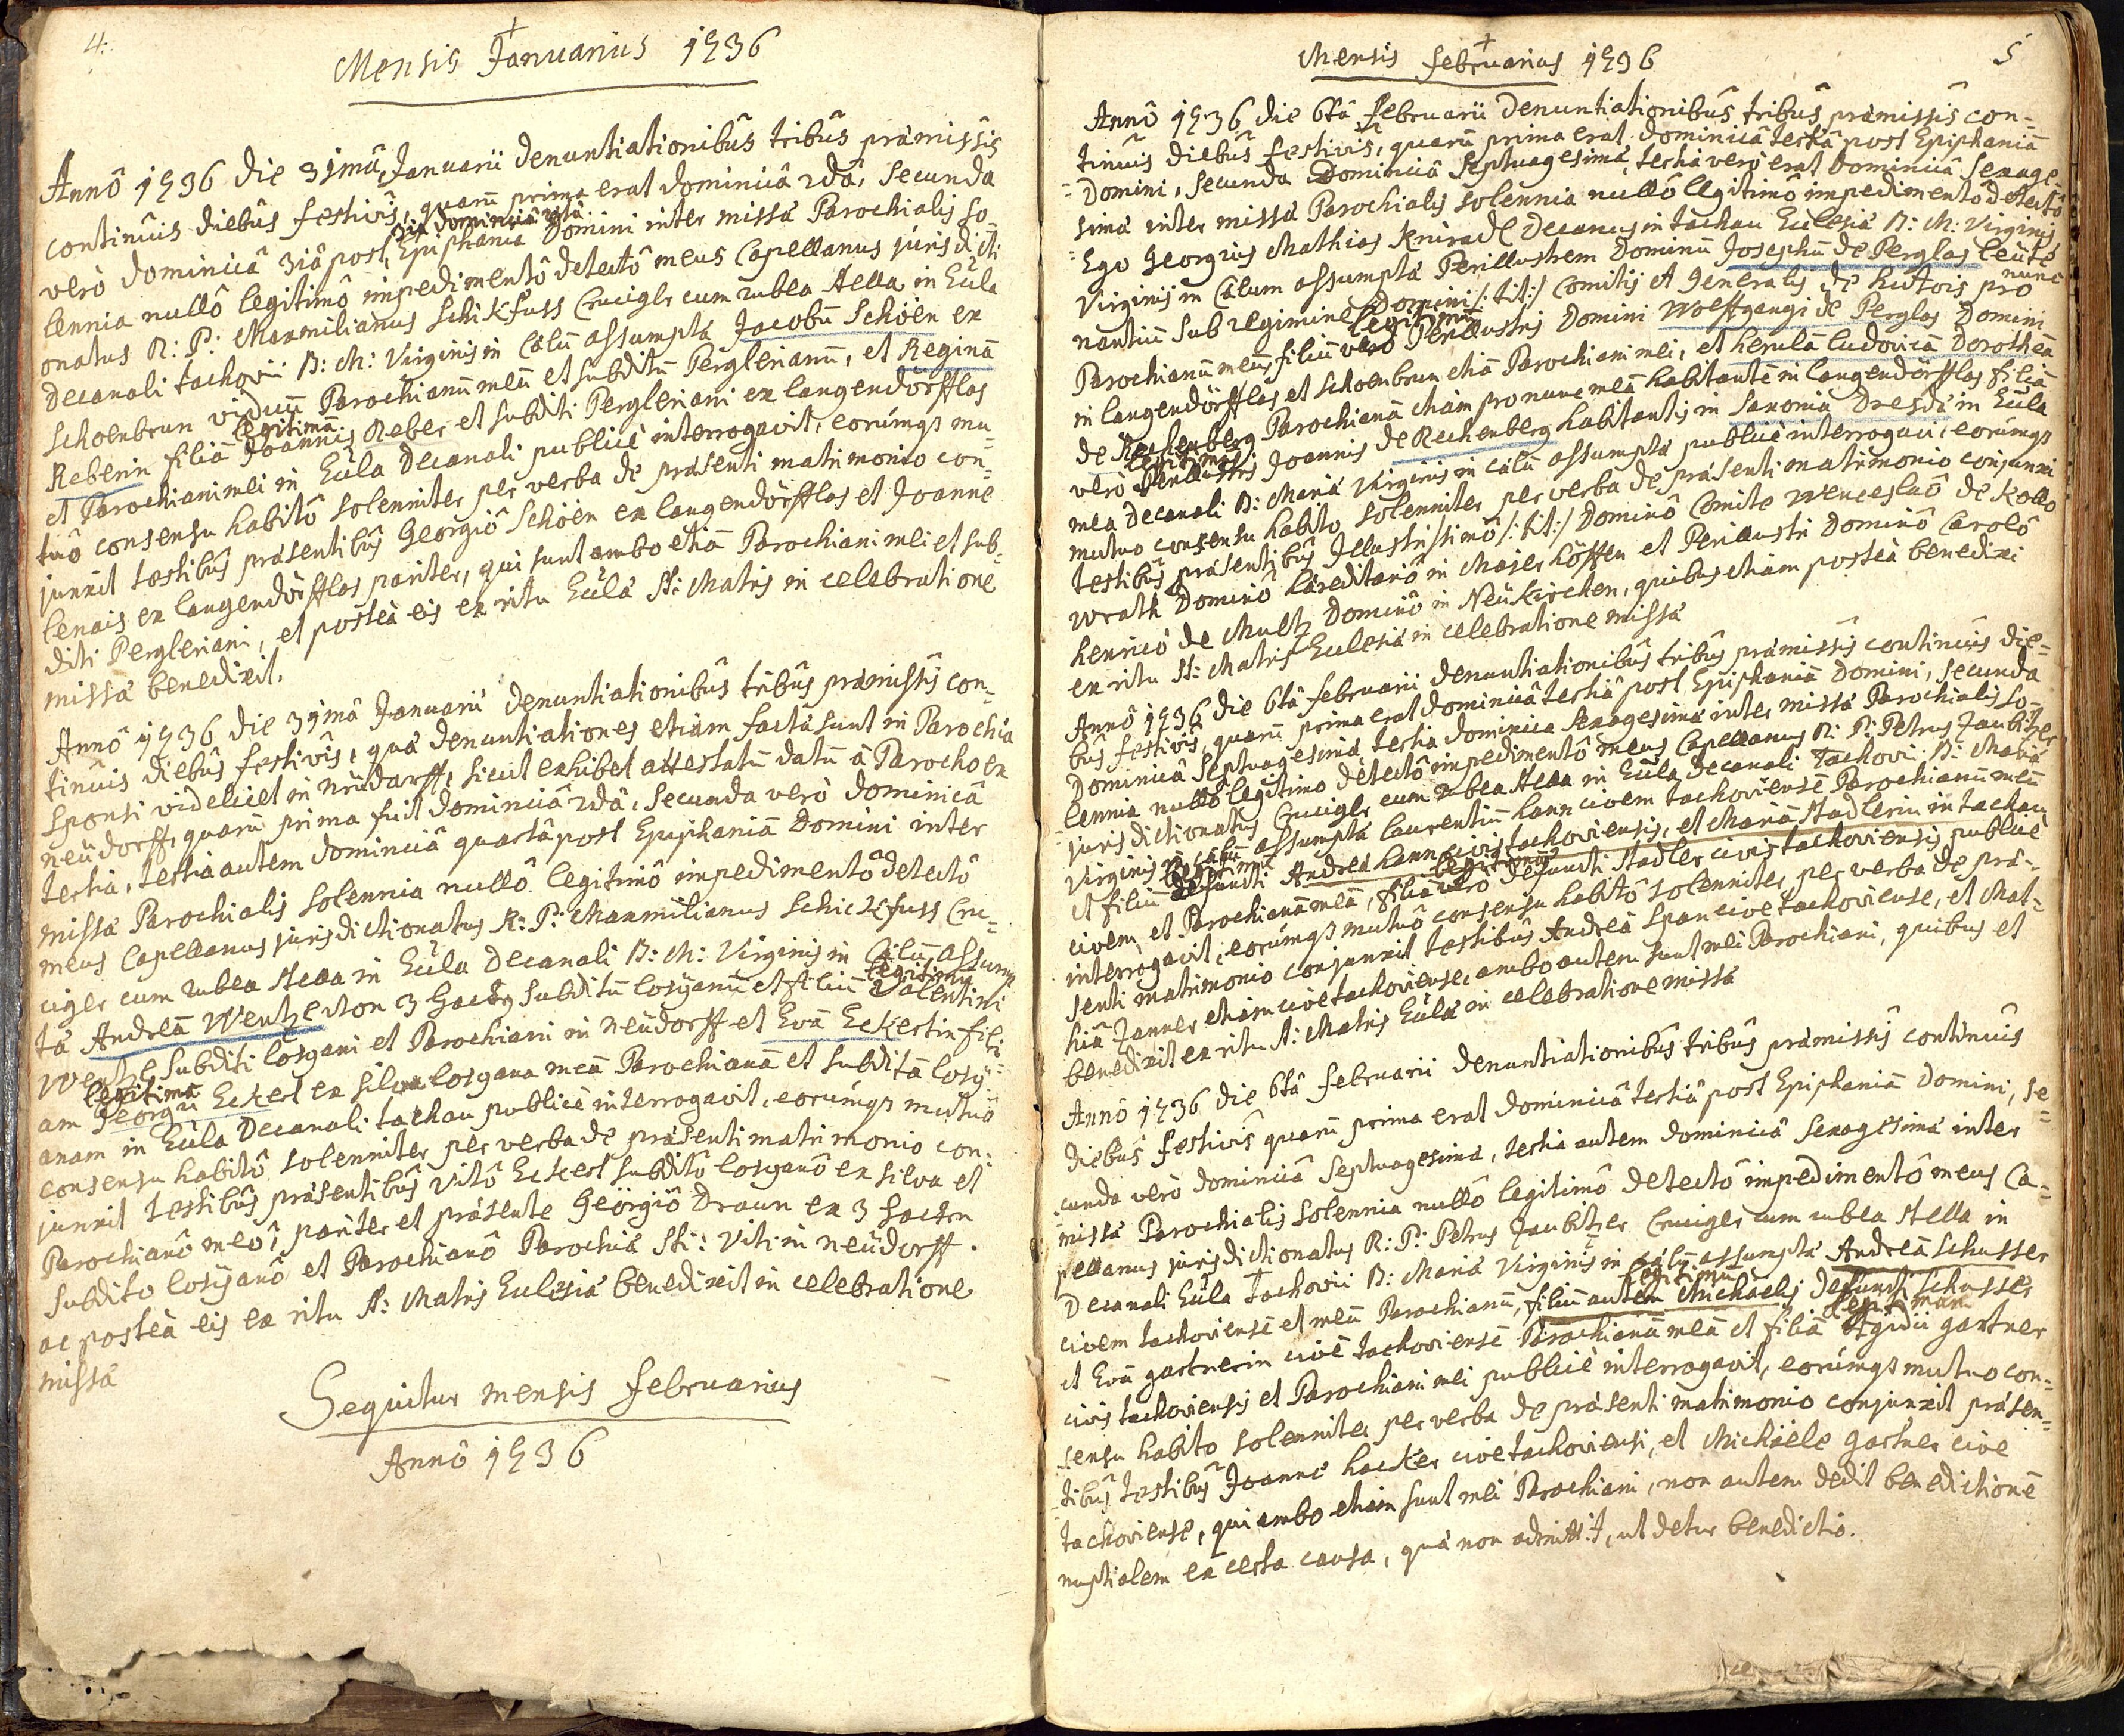 4.
+
Mensis Januarius 1736
Annô 1736 die 31mâ Januarii denuntiationibûs tribûs præmissis
continuis diebûs festivîs, quarū prima erat dominicâ 2dâ, secunda
verò dominicâ 3iâ post Epiphaniā Domini inter missæ Parochialis so
lennia nullô legitimô impedimentô detectô meus Capellanus jurisdicti
onatus R: P: Maxmilianus Schikfuss Cruciger cum rubea stella in Eccla
Decanali tachovii B: M: Virginis in cælū assumptæ Jacobū Schöen ex
Schoenbrun viduū Parochianū meū et subditū Perglerianū, et Reginā
legitimā
Reberin filiā Joannis Reber et subditi Pergleriani ex langendörfflas
et Parochiani mei in Eccla Decanali publicè interrogavit, eorumqs mu=
tuô consensu habitô solenniter per verba de præsenti matrimonio con=
junxit testibûs præsentibûs Georgiô Schöen ex langendörfflas et Joanne
lenais ex langendörfflas pariter, qui sunt ambo etiā Parochiani mei et sub=
diti Pergleriani, et posteà eis ex ritu Ecclæ St: Matris in celebratione
missæ benedixit.
Annô 1736 die 31mâ Januarii denuntiationibûs tribûs præmissis con=
tinuis diebûs festivîs, quæ denuntiationes etiam factæ sunt in Parochia
sponsi videlicet in neüdorff, sicut exhibet attestatū datū à Parocho ex
neüdorff, quarū prima fuit dominicâ 2dâ, secunda verò dominicâ
tertia, tertia autem dominicâ quartâ post Epiphaniā Domini inter
missæ Parochialis solennia nullô legitimô impedimentô detectô
meus Capellanus jurisdictionatus R: P: Maxmilianus Schickfuss Cru=
ciger cum rubea stella in Eccla Decanali B: M: Virginis in Cælū assump
legitimū
tæ Andreā Wentzl von 3 Hacken subditū losÿanū et filiū Valentini
Wentzl subditi losyani et Parochiani in neüdorff et Evā Eckertin fili=
legitimā
am Georgii Eckert ex silva losyana meā Parochianā et subditā losÿ=
anam in Eccla Decanali tachau publicè interrogavit, eorumqs mutuô
consensu habitô solenniter per verba de præsenti matrimonio con=
junxit testibûs præsentibûs Vitô Eckert subditô losyanô ex silva et
Parochianô meo, pariter et præsente Geörgiô Draun ex 3 Hacken
subdito losÿanô et Parochianô Parochiæ Sti: Viti in neüdorff.
ac posteà eis ex ritu St: Matris Ecclesiæ benedixit in celebratione
missæ
Sequitur mensis Februarius
Annô 1736
5
+
Mensis Februarius 1736
Annô 1736 die 6tâ Februarii denuntiationibûs tribûs præmissis con=
tinuis diebûs festivîs, quarū prima erat dominicâ tertiâ post Epiphaniā
Domini, secunda Dominicâ Septuagesimæ, tertia verò erat Dominicâ Sexage=
simæ inter missæ Parochialis solennia nullô legitimô impedimentô detectô
Ego Georgius Mathias Kniradl Decanus in tachau Ecclesiæ B: M: Virginis
Virginis in Cælum assumptæ Perillustrem Dominū Josephū de Perglas leüte
nantiū sub regimine Domini /:tit:/ Comitis et Generalis de Hutois pro nunc
legitimū
Parochianū meū, filiū verò Perillustris Domini Wolffgangi de Perglas Domini
in langendörfflas et Schoenbrun etiā Parochiani mei, et herulā ludovicā Dorotheā
de Rechenberg Parochianā etiam pro nunc meā habitantē in langendörfflas filiā
legitimā
verò Perillustris Joannis de Rechenberg habitantis in Saxonia Dresdæ in Eccla
mea Decanali B: Mariæ Virginis in cælū assumptæ publicè interrogavi, eorumqs
mutuo consensu habito solenniter per verba de præsenti matrimonio conjunxi
testibûs præsentibûs Illustrissimô /:tit:/ Dominô Comite Wenceslaô de Kollo
wrath Dominô hæreditariô in Majerhöffen et Perillustri Dominô Carolô
henricô de Multz Dominô in Neükirchen, quibus etiam posteà benedixi
ex ritu St: Matris Ecclesiæ in celebratione missæ
Annô 1736 die 6tâ februarii denuntiationibûs tribûs præmissis continuis die=
bûs festivîs, quarū prima erat dominicâ tertiâ post Epiphaniā Domini, secunda
Dominicâ Septuagesimæ, tertia dominica Sexagesimæ inter missæ Parochialis so=
lennia nullô legitimo detectô impedimentô meus Capellanus R: P: Petrus Jaubitzer
jurisdictionatus Cruciger cum rubea stella in Eccla Decanali Tachovii B: Mariæ
Virginis in cælū assumptæ laurentiū hann civem tachoviensē Parochianū meū
legitimū
et filiū defuncti Andreæ hann civis tachoviensis, et Mariā Stadlerin in tachau
legitimā
civem et Parochianā meā, filiā verò defuncti Stadler civis tachoviensis publicè
interrogavit, eorumqs mutuô consensu habitô solenniter per verba de præ=
senti matrimonio conjunxit testibûs Andreâ Span cive tachoviense, et Mat=
hiâ Janner etiam cive tachoviense, ambo autem sunt mei Parochiani, quibus et
benedixit ex ritu St: Matris Ecclæ in celebratione missæ
Annô 1736 die 6tâ februarii denuntiationibûs tribûs præmissis continuis
diebûs festivîs quarū prima erat dominicâ tertiâ post Epiphaniā Domini, se=
cunda verò dominicâ Septuagesimæ, tertia autem dominicâ sexagesimæ inter
missæ Parochialis solennia nullô legitimô detectô impedimentô meus Ca=
pellanus jurisdictionatus R: P: Petrus Jaubitzer Cruciger cum rubea stella in
Decanali Eccla Tachovii B: Mariæ Virginis in cælū assumptæ Andreā Schusser
legitimū
civem tachoviensē et meū Parochianū, filiū autem Michaëlis defuncti Schusser
legitimam
et Evā gartnerin civē tachoviensē Parochianā meā et filiā Ægidii gartner
civis tachoviensis et Parochiani mei publicè interrogavit, eorumqs mutuo con=
sensu habito solenniter per verba de præsenti matrimonio conjunxit præsen=
tibûs testibûs Joanne hacker cive tachoviensi, et Michäele gartner cive
tachoviense, qui ambo etiam sunt mei Parochiani, non autem dedit benedictionē
nuptialem ex certa causa, quæ non admittit, ut detur benedictio.